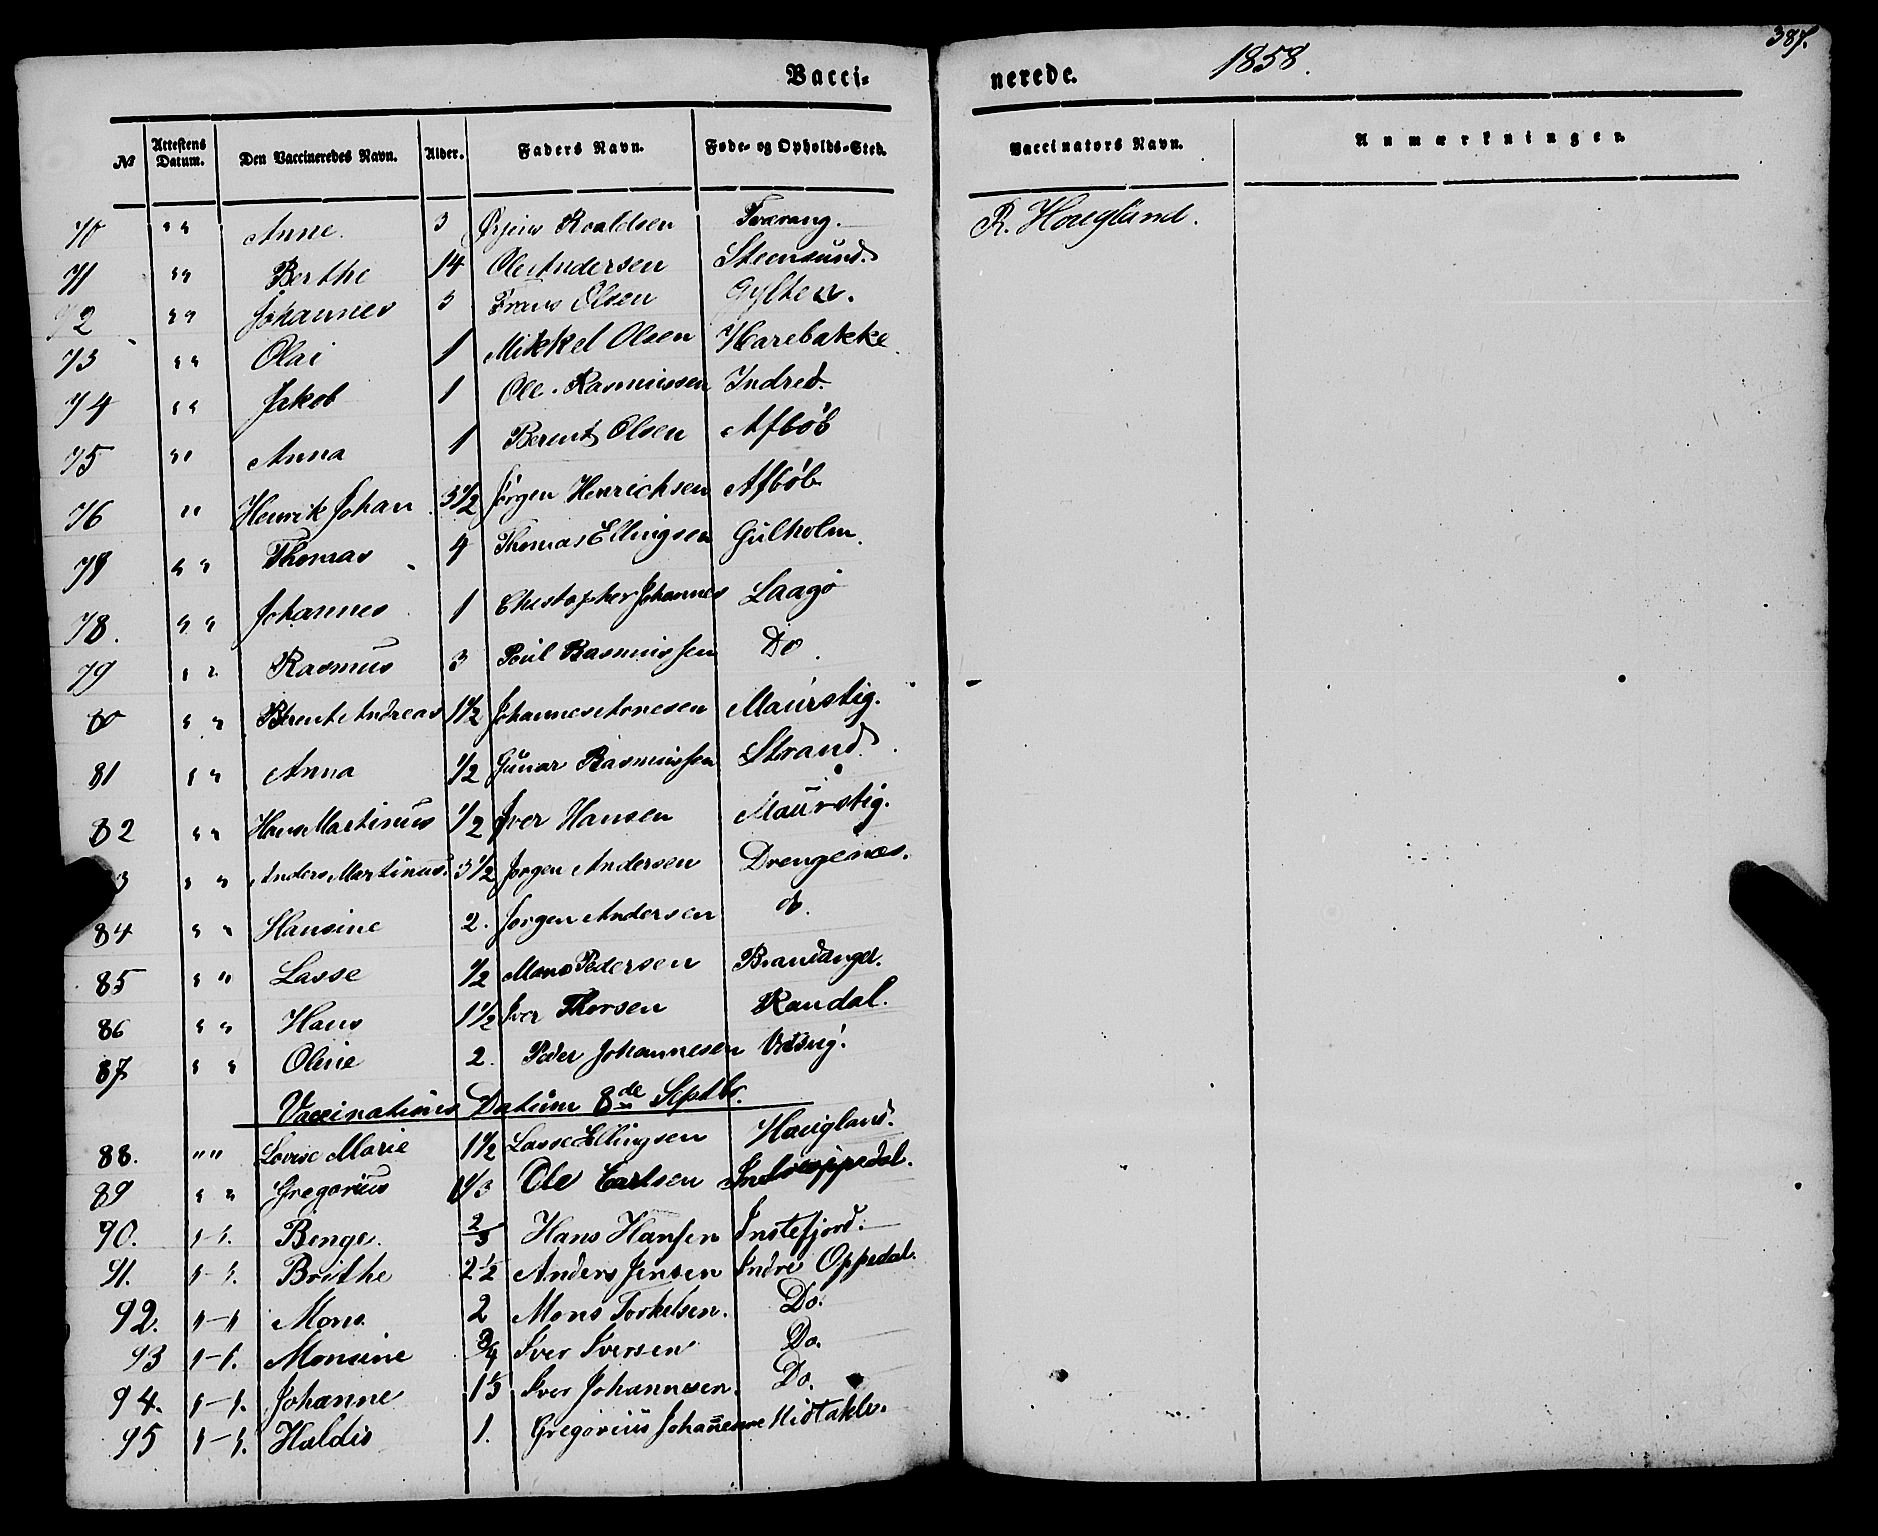 Vacci- nerede. 1858. 387.
№ Attestens Datum. Den Vaccineredes Navn. Alder. Faders Navn. Føde- og Opholds-Sted. Vaccinators Navn. Anmærkninger.
70 " " Anne 3 Roaldsen Tværang. R. Hougland.
71 " " Berthe 14 Ole Andersen Steensund.
72 " " Johannes 3 Frans Olsen Gylten.
73 " " Olai 1 Mikkel Olsen Harebakke
74 " " Jakob 1 Ole Rasmussen Indred.
75 " " Anna 1 Berent Olsen Afbøb
76 " " Henrik Johan 3 1/2 Jørgen Henrichsen Afbøb
78 " " Thomas 4 Thomas Ellingsen Gulholm.
78. " " Johannes 1 Christopher Johannes Laagø
79 " " Rasmus 3 Poul Rasmussen Do.
80 " " Berent Andreas 1 1/2 Johannes Monsen Maurstig.
81 " " Anna 1/2 Gunar Rasmussen Strand.
82 " " Hans Martinus 1/2 Iver Hansen Maurstig.
3 " " Anders Martinus. 3 1/2 Jørgen Andersen Drengenæs.
84 " " Hansine 2. Jørgen Andersen do.
85 " " Lasse 1/2 Mons Pedersen Brandanger.
86 " " Hans 1 1/2 Iver Thorsen Randal.
87 " " Oline 2. Peder Johannesen
Vaccinations Datum 8de Septbr.
88. " " Lovise Marie 1 1/2 Lasse Ellingsen Haugland.
89 " " Gregorius 1/3 Ole Carlsen Indreoppedal.
90. "-". Benge. 2/3 Hans Hansen Instefjord.
91. "-". Brithe 2 1/2 Anders Jensen Indre Oppedal.
92. "-" Mons 2 Mons Torkelsen. Do.
93 "-". Monsine 3/4 Iver Iversen Do.
94. "-". Johanne 1 1/3 Iver Johannesen. Do.
95 "-". Haldis 1. Gregorius Johannesen Midtakle.